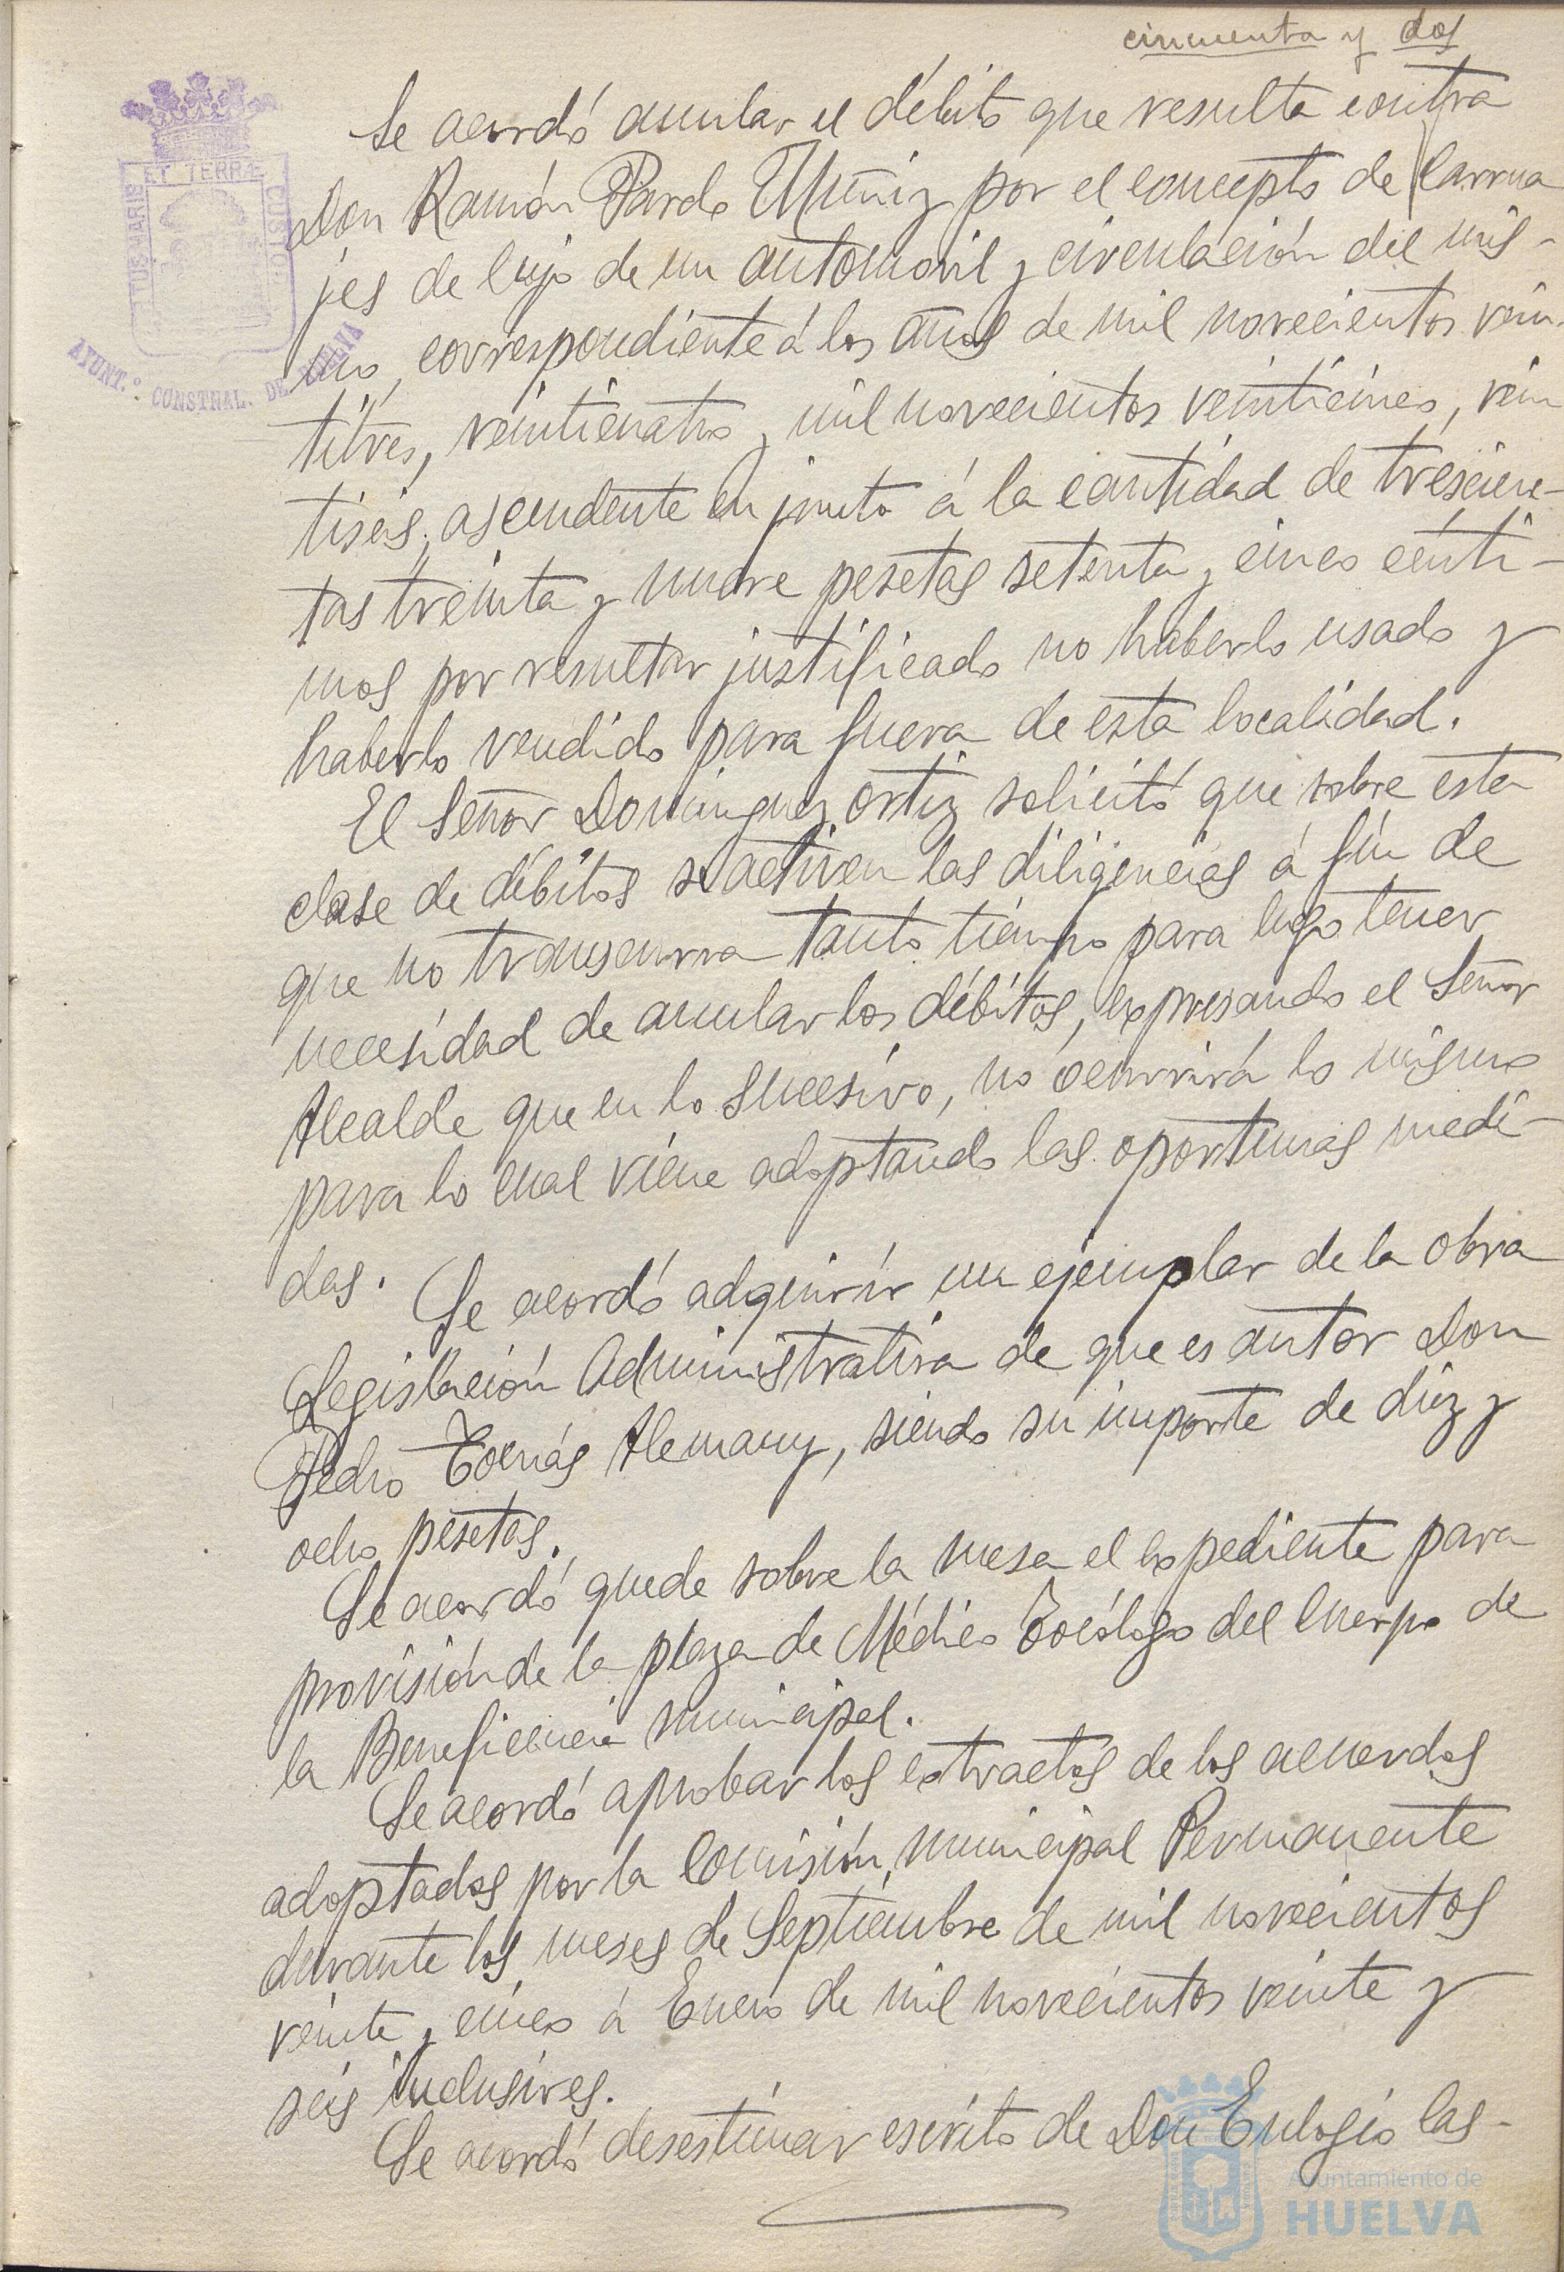 cincuenta y dos
Se acordó anular el débito que resulta contra
Don Ramón Pardo Muñiz por el concepto de Carrua
jes de lujo de un automovil y circulación del mis-
mo, correspondiente á los años de mil novecientos vein-
titres, veinticuatro, mil novecientos veinticinco, vein
tiseis, ascendente en junto á la cantidad de trescien-
tas treinta y nueve pesetas setenta y cinco cénti-
mos por resultar justificado no haberlo usado y
haberlo vendido para fuera de esta localidad.
El Señor Dominguez Ortiz solicitó que sobre esta
clase de débitos se activen las diligencias á fin de
que no transcurra tanto tiempo para luego tener
necesidad de anular los débitos, expresando el Señor
Alcalde que en lo sucesivo, no ocurrirá lo mismo
para lo cual viene adoptando las oportunas medi-
das.
Se acordó adquirir un ejemplar de la obra
Legislación Administrativa de que es autor Don
Pedro Tomás Alemany, siendo su importe de diez y
ocho pesetas.
Se acordó quede sobre la mesa el expediente para
provisión de la plaza de Médico Tocólogo del Cuerpo de
la Beneficencia municipal.
Se acordó aprobar los extractos de los acuerdos
adoptados por la Comisión municipal Permanente
durante los meses de Septiembre de mil novecientos
veinte y cinco á Enero de mil novecientos veinte y
seis inclusives.
Se acordó desestimar escrito de Don Eulogio Las-
ET TERRÆ
CUSTOD
AYUNT.º CONSTNAL. DE HUELVA
Ayuntamiento de
HUELVA